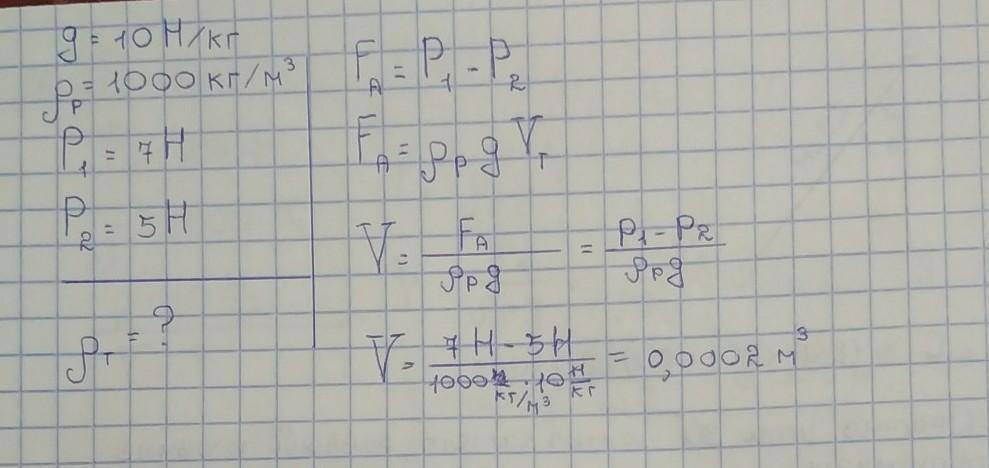 g = 10 Н/кг
ρр = 1000 кг/м³
P₁ = 7 Н
P₂ = 5 Н
ρт = ?
Fᴀ = P₁ - P₂
Fᴀ = ρр g Vт
V = Fᴀ / ρр g = P₁ - P₂ / ρр g
V = 7 Н - 5 Н / 1000 кг/м³ · 10 Н/кг = 0,0002 м³